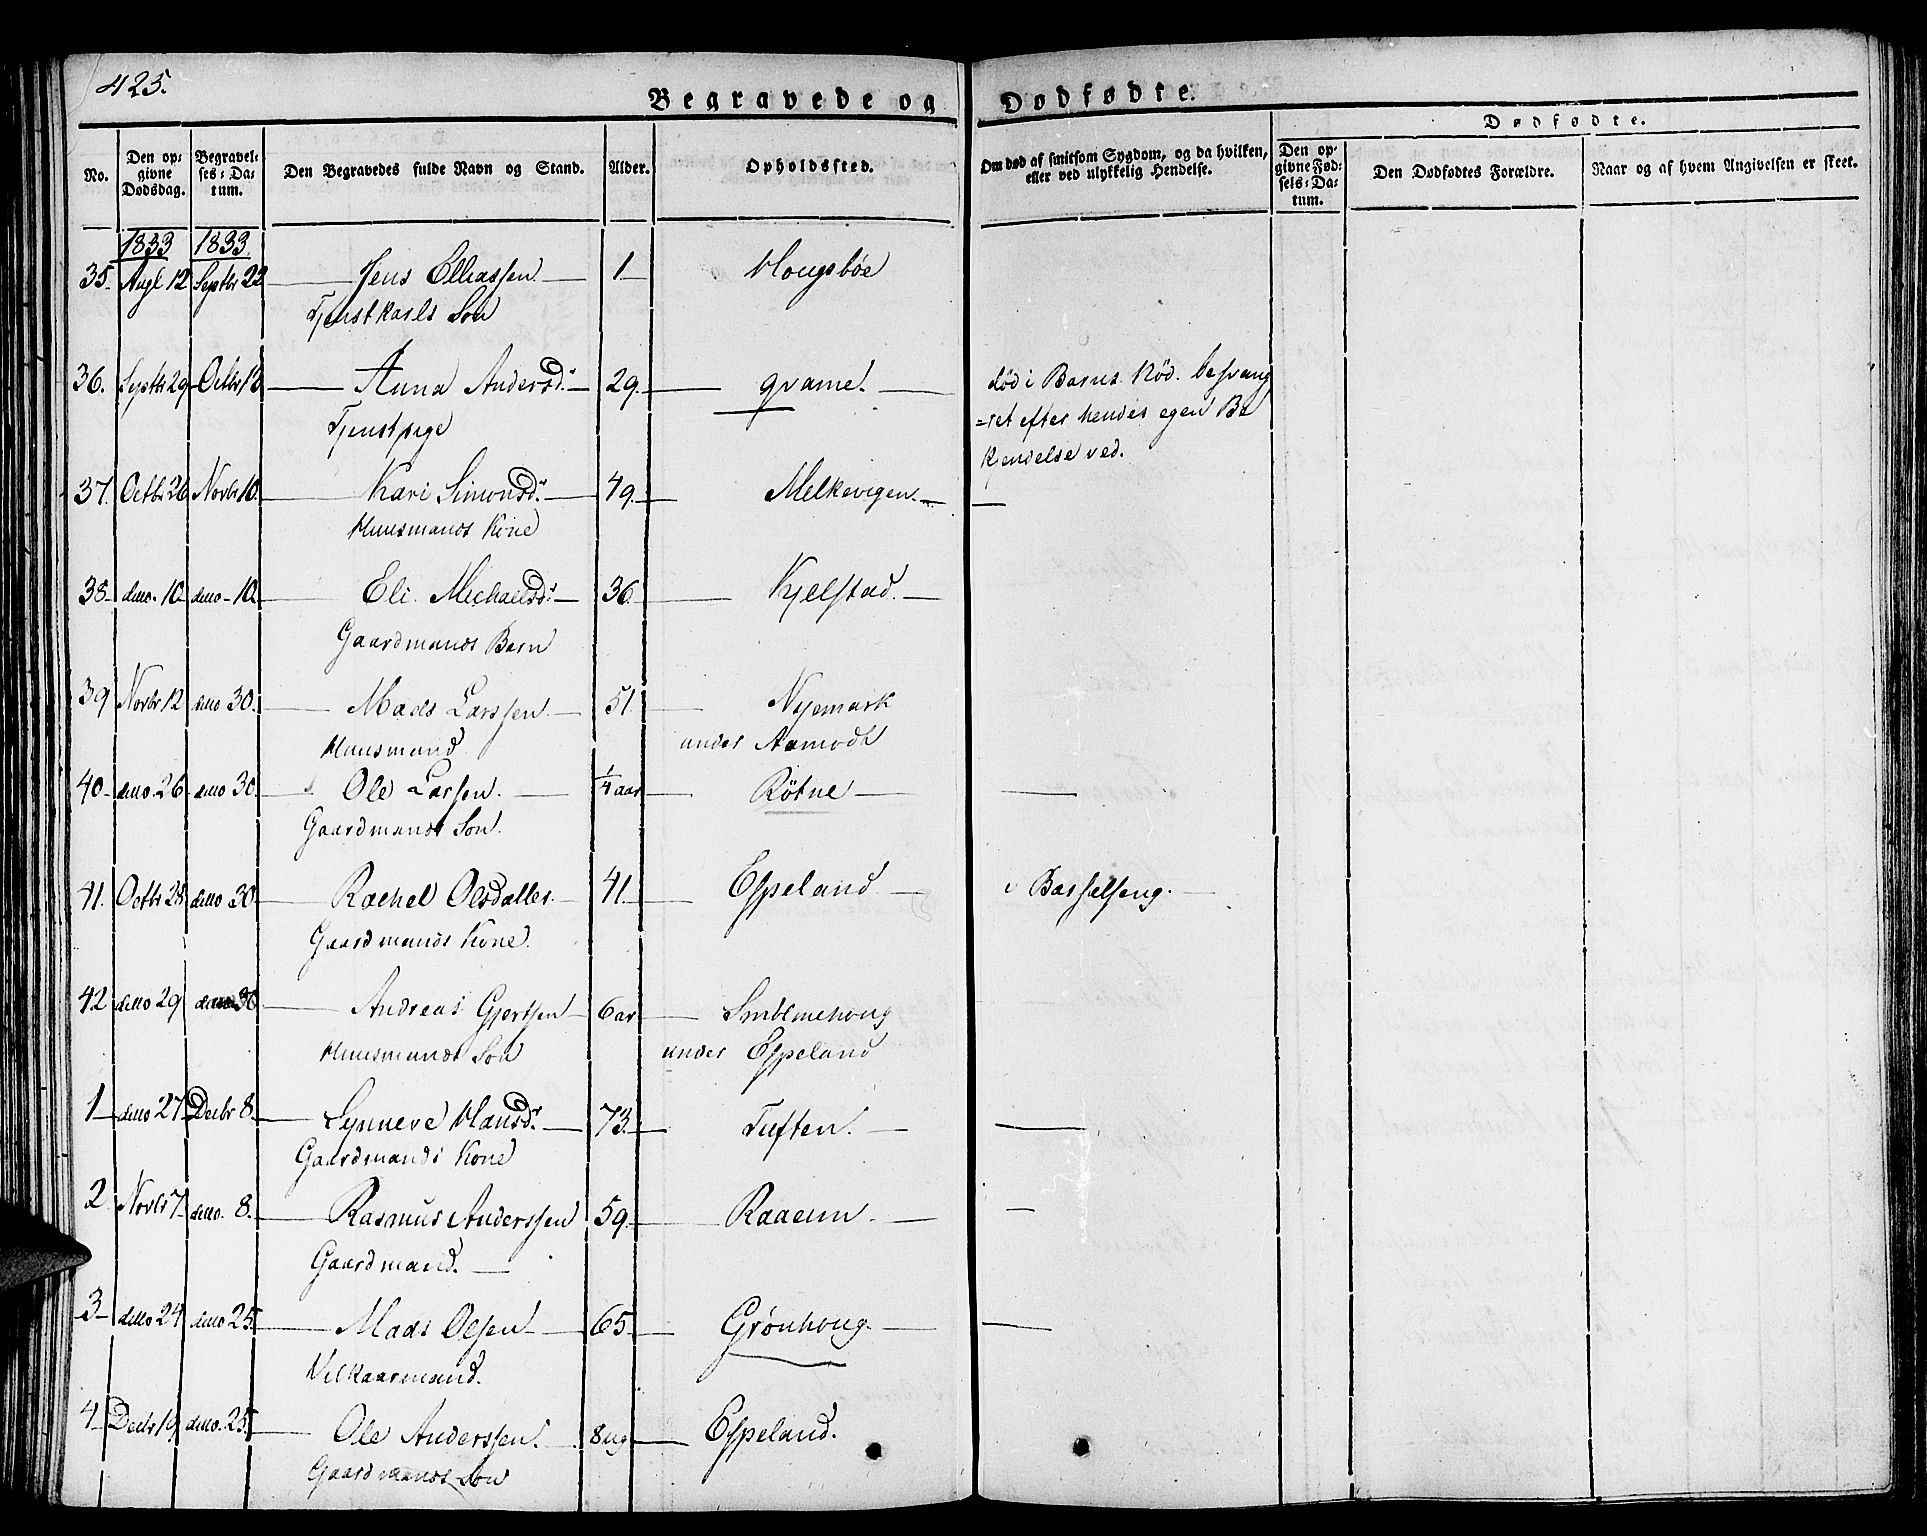 425.
Begravede og Dødfødte.
No.
Den opgivne Dødsdag.
Begravelses-Datum.
Den Begravedes fulde Navn og Stand.
Alder.
Opholdssted.
Om død af smitsom Sygdom, og da hvilken, eller ved ulykkelig Hendelse.
Dødfødte.
Den opgivne Fødsels-Datum.
Den Dødfødtes Forældre.
Naar og af hvem Angivelsen er skeet.
1833 1833
35 Augt 12 Septbr 22 Jens Elliassen 1 Hougsbøe
Tjenstkarls Søn
36. Septbr 29 Octbr 13 Anna Andersd. 29. qvame. død i Barns Nød. besvang
Tjenstpige =ret efter hendes egen Be
kjendelse ved.
37. Octbr 26 Novbr 10. Kari Simonsd. 49. Melkevigen.
Huusmands Kone
38 deno. 10 deno 10. Eli Michaelsd. 36. Kjelstad.
Gaardmands Barn
39 Novbr 12 deno 30. Mads Larssen 51 Nyemark
Huusmand under Aamodt
40 deno. 26 deno 30. Ole Larsen. 1/4 aar Røtne
Gaardmands Søn.
41. Octbr 28 deno 30. Rachel Olsdatter 41. Espeland i Barselseng.
Gaardmands Kone.
42 deno 29 deno 30 Andreas Gjertsen 6 ar
Huusmands Søn under Espeland
1 deno 27 Decbr 8. Synneve Hansd. 73. Tuften.
Gaardmands Kone
2 Novbr 7. deno. 8. Rasmus Anderssen 59. Raaeim.
Gaardmand.
3 deno 24 deno 25. Mads Olsen 65. Grønhoug.
Vilkaarmand.
4 Decbr 19 deno. 25. Ole Anderssen. 8 ug Espeland.
Gaardmands Søn